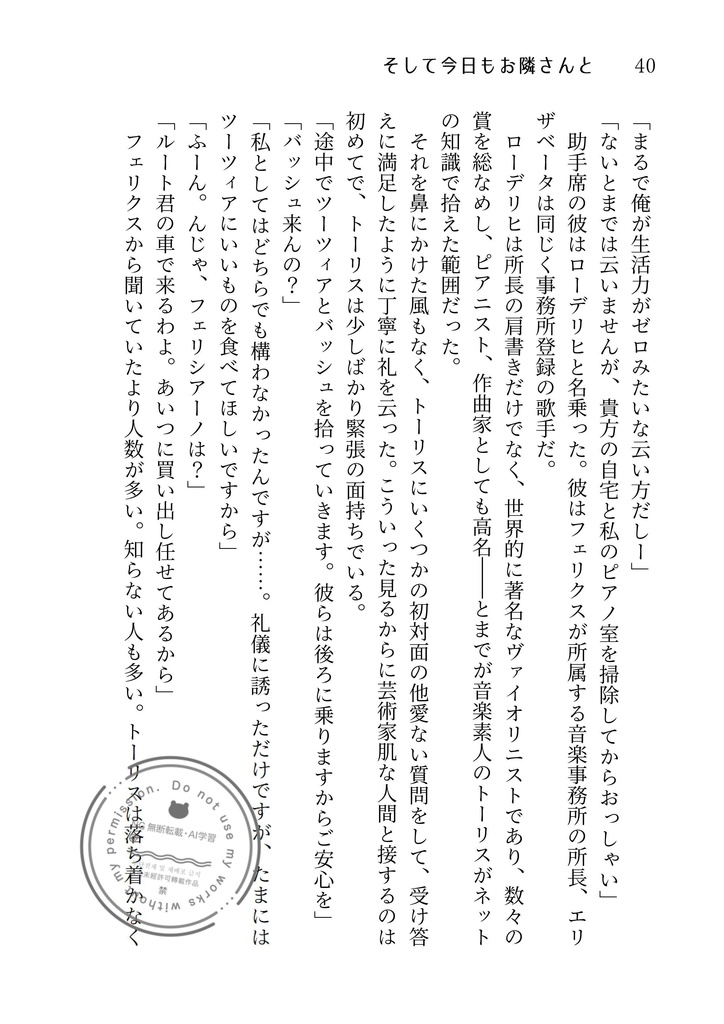 そして今日もお隣さんと 40
「まるで俺が生活力がゼロみたいな云い方だしー」
「ないとまでは云いませんが、貴方の自宅と私のピアノ室を掃除してからおっしゃい」
助手席の彼はローデリヒと名乗った。彼はフェリクスが所属する音楽事務所の所長、エリ
ザベータは同じく事務所登録の歌手だ。
ローデリヒは所長の肩書きだけでなく、世界的に著名なヴァイオリニストであり、数々の
賞を総なめし、ピアニスト、作曲家としても高名――とまでが音楽素人のトーリスがネット
の知識で拾えた範囲だった。
それを鼻にかけた風もなく、トーリスにいくつかの初対面の他愛ない質問をして、受け答
えに満足したように丁寧に礼を云った。こういった見るからに芸術家肌な人間と接するのは
初めてで、トーリスは少しばかり緊張の面持ちでいる。
「途中でツーツィアとバッシュを拾っていきます。彼らは後ろに乗りますからご安心を」
「バッシュ来んの？」
「私としてはどちらでも構わなかったんですが……。礼儀に誘っただけですが、たまには
ツーツィアにいいものを食べてほしいですから」
「ふーん。んじゃ、フェリシアーノは？」
「ルート君の車で来るわよ。あいつに買い出し任せてあるから」
フェリクスから聞いていたより人数が多い。知らない人も多い。トーリスは落ち着かなく
Do not use my works without my permission.
無断転載・AI学習
未經許可轉載作品
禁